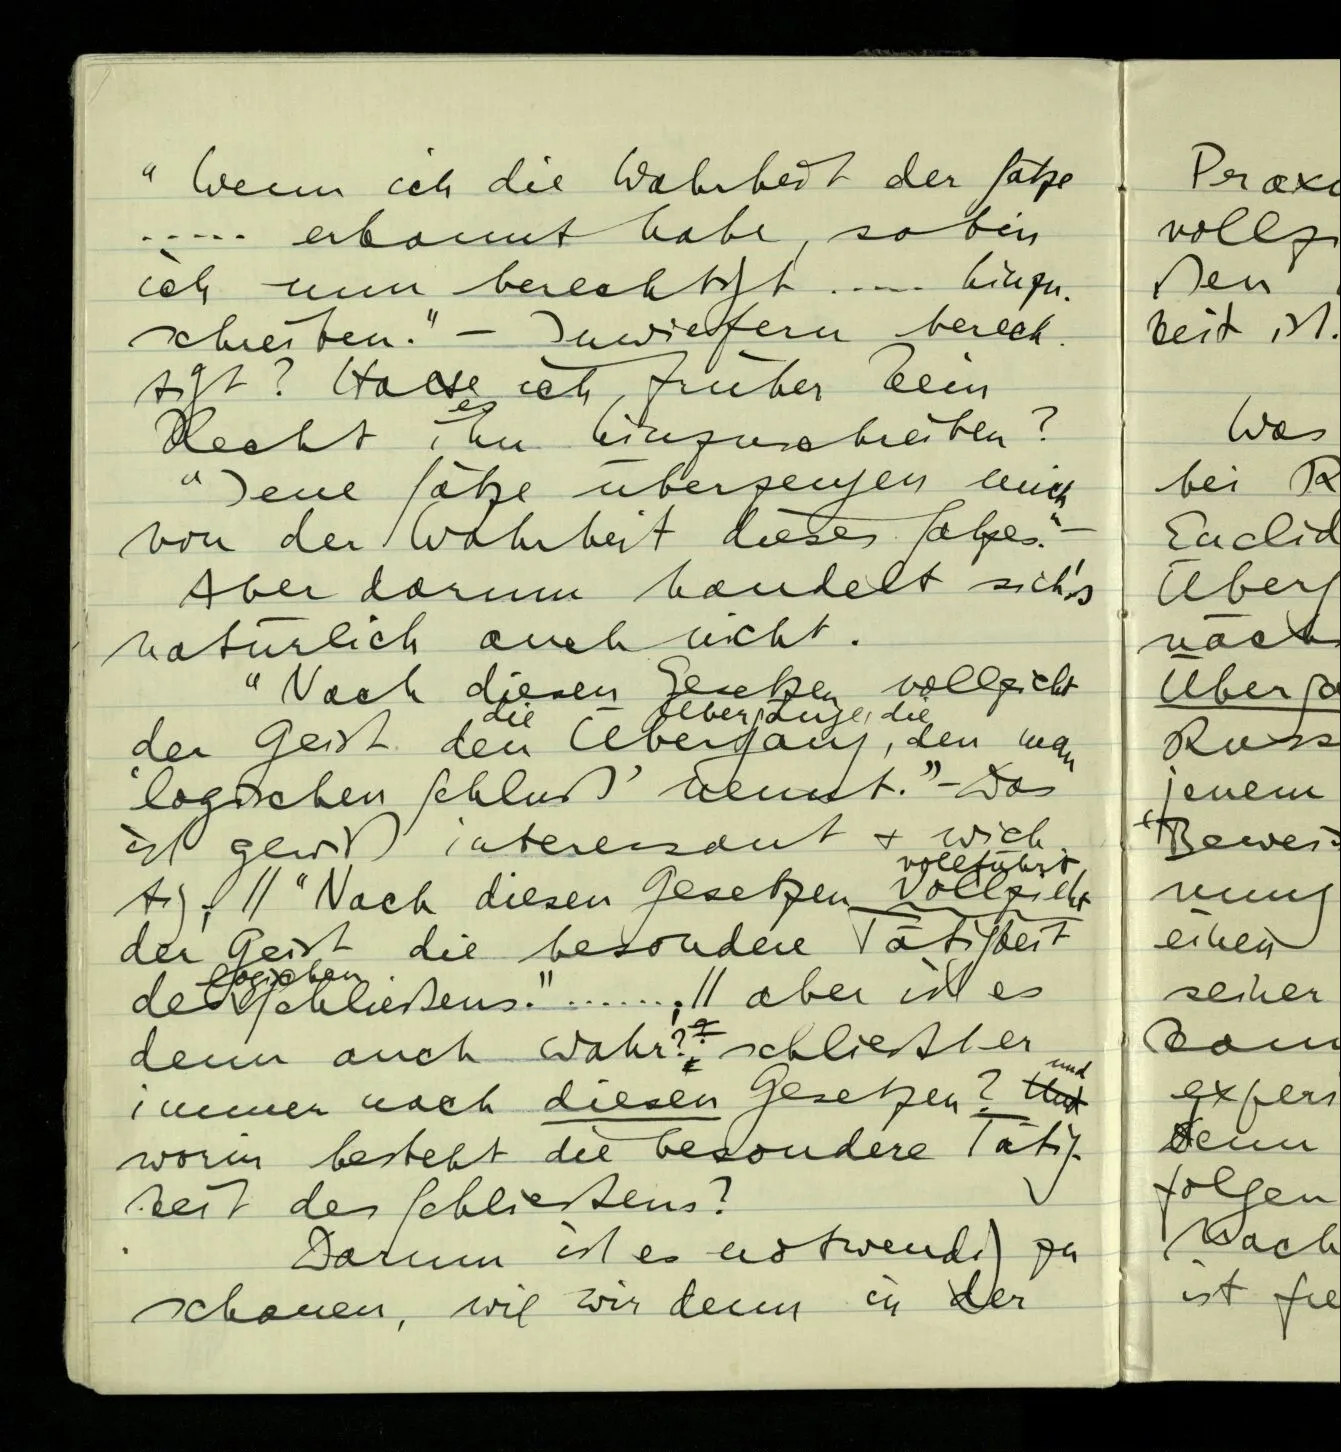 "Wenn ich die Wahrheit der Sätze
..... erkannt habe, so bin
ich nun berechtigt ..... hinzu-
schreiben." – Inwiefern berech-
tigt? Hatte ich früher kein
es
Recht ihn hinzuschreiben?
"Jene Sätze überzeugen mich
von der Wahrheit dieses Satzes." –
Aber darum handelt sich's
natürlich auch nicht.
"Nach diesen Gesetzen vollzieht
die Übergänge, die
der Geist den Übergang, den man
'logischen Schluß' nennt." – Das
ist gewiß interessant & wich
vollführt
tig; // "Nach diesen Gesetzen vollzieht
der Geist die besondere Tätigkeit
logischen
des Schließens." .......; // aber ist es
denn auch wahr? schließt er
und
immer nach diesen Gesetzen? Und
worin besteht die besondere Tätig-
keit des Schließens?
Darum ist es notwendig zu
schauen, wie wir denn in der
Praxi
vollzi
den
keit ist.
Was
bei R
Euclid
Überg
näch
Überga
Russ
jenem
"Bewei
nung
einen
seiner
kann
experi
Denn
folgen
Nach
ist fre